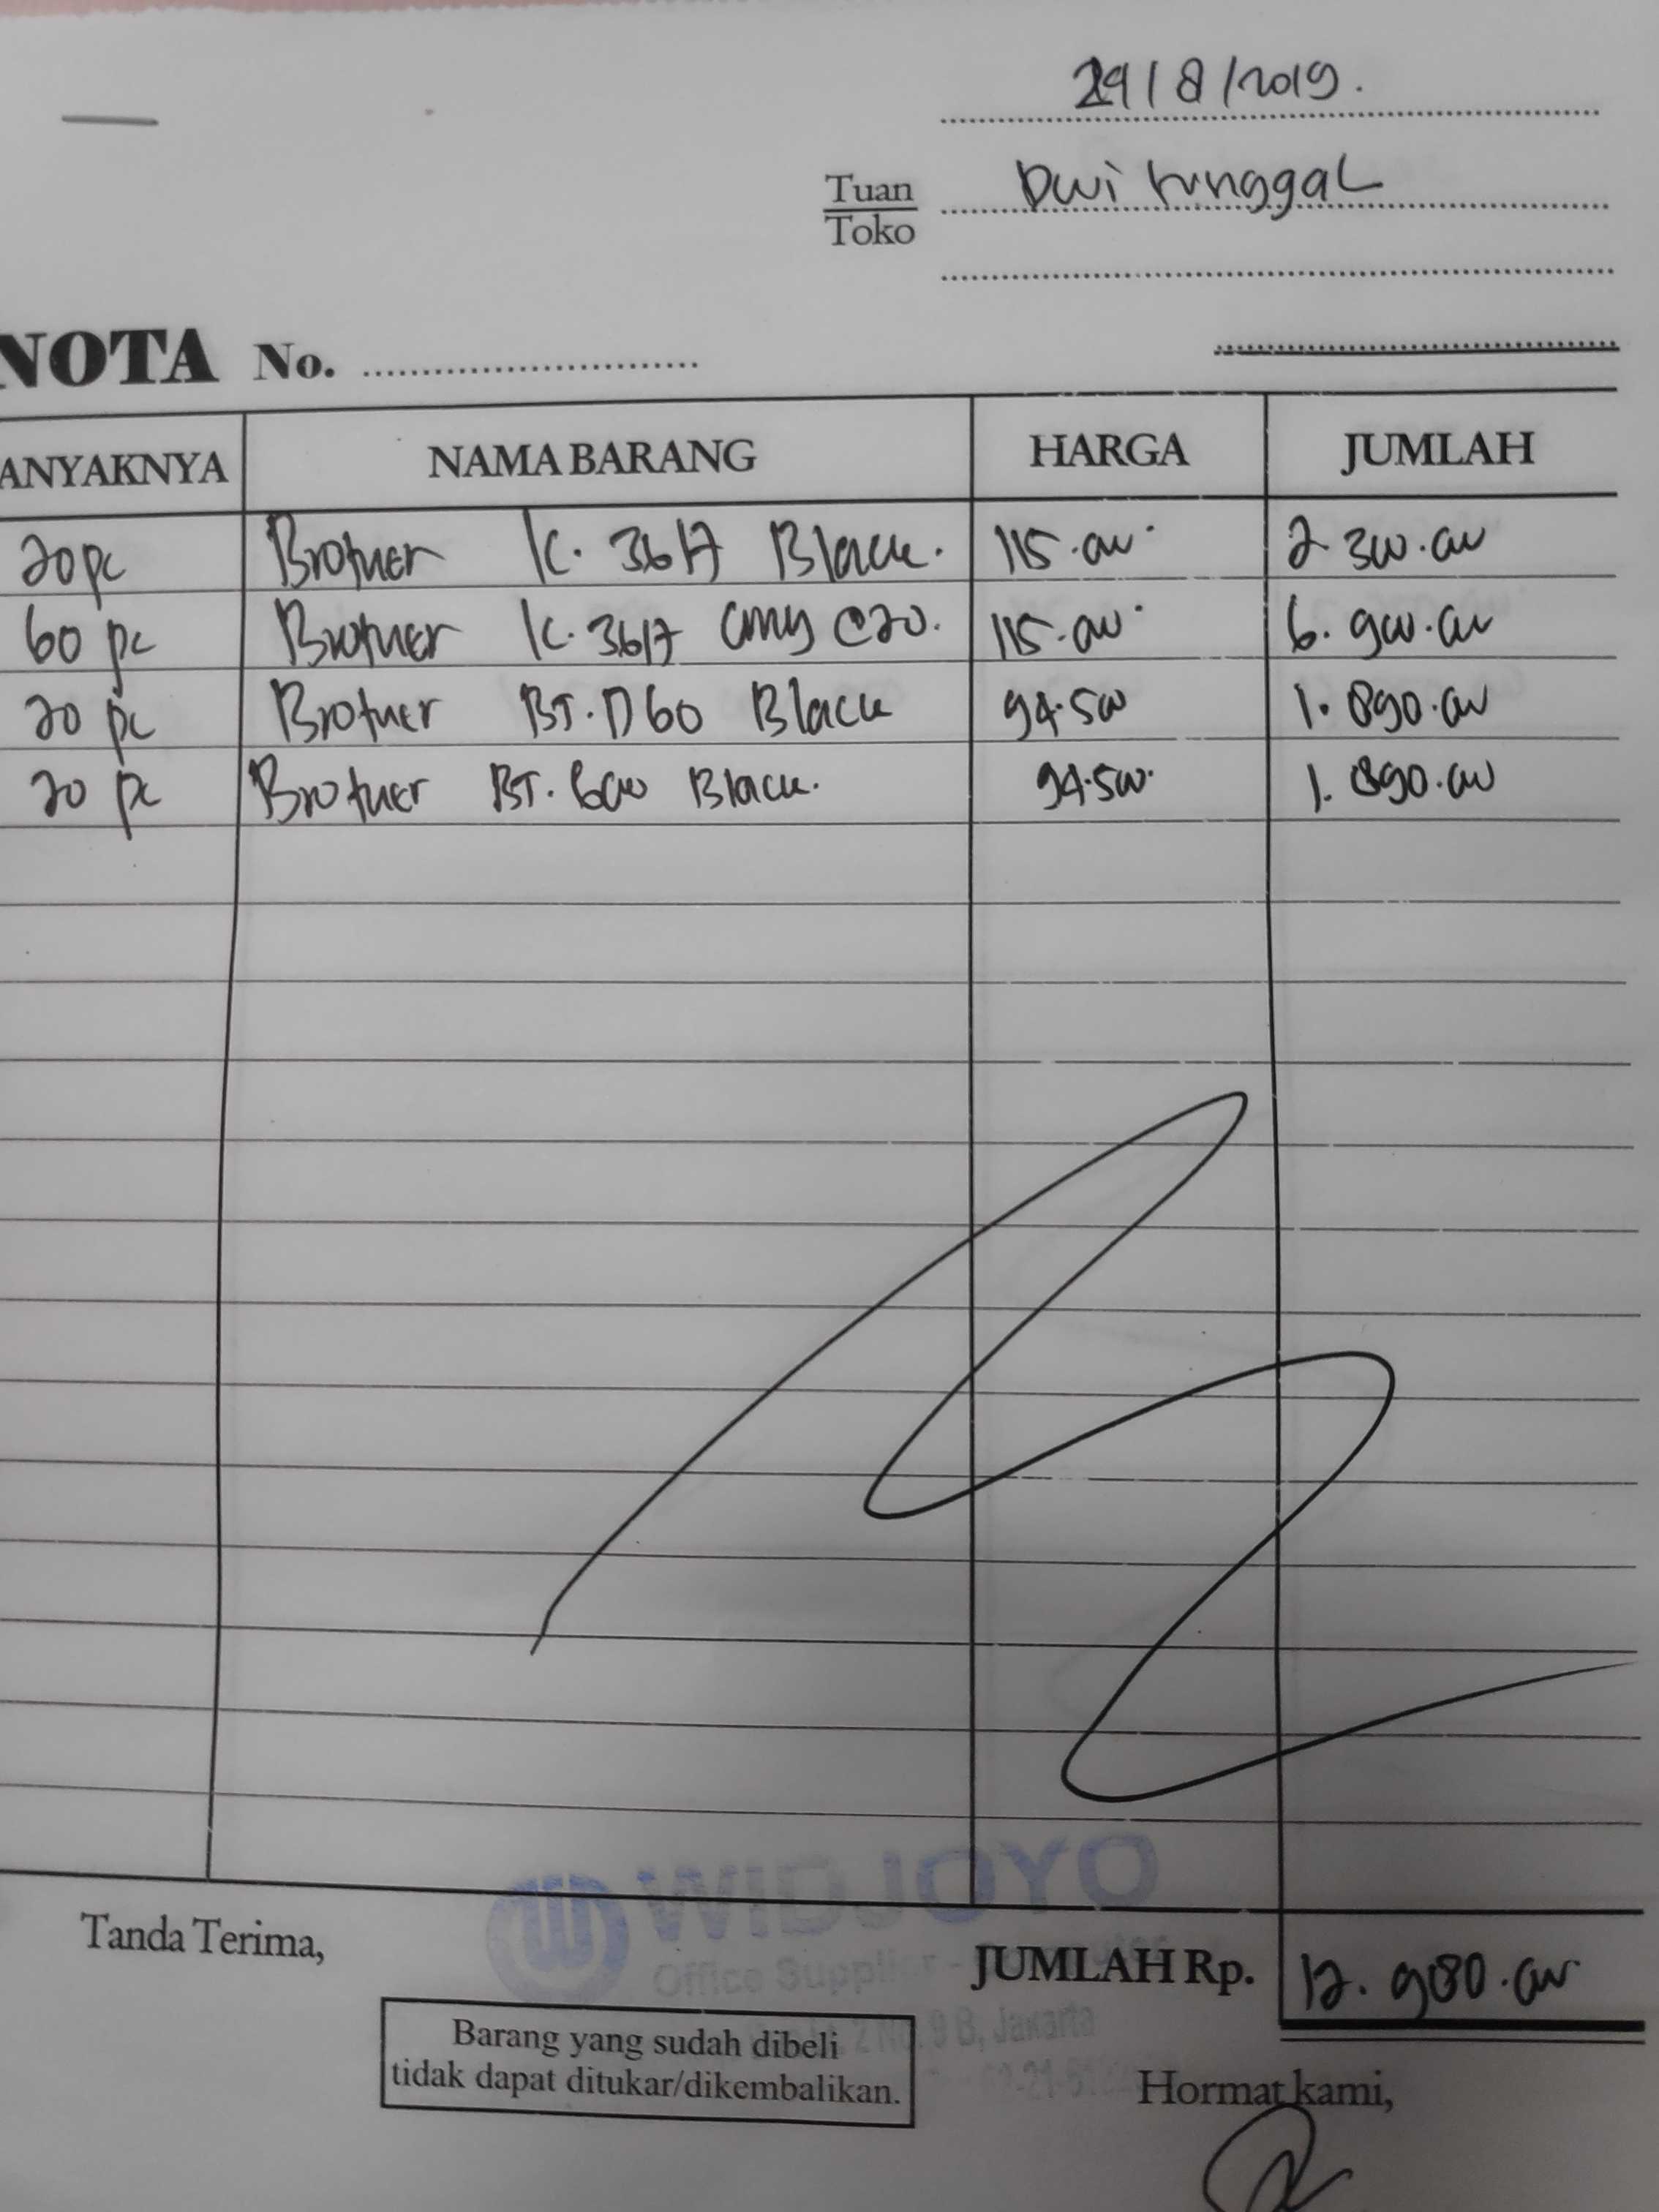 29/8/2019.
Tuan
Toko
Dwi tunggal
NOTA No.
ANYAKNYA NAMA BARANG HARGA JUMLAH
20 pc Brother lc. 3617 Black. 115.000 2.300.000
60 pc Brother lc. 3617 cmy @20. 115.000 6.900.000
20 pc Brother BT.D60 Black 94.500 1.890.000
20 pc Brother BT.6000 Black. 94.500 1.890.000
WIDJOYO
Office Supplier -
2 No. 9 B, Jakarta
Tanda Terima,
JUMLAH Rp. 12.980.000
Barang yang sudah dibeli
tidak dapat ditukar/dikembalikan.
Hormat kami,